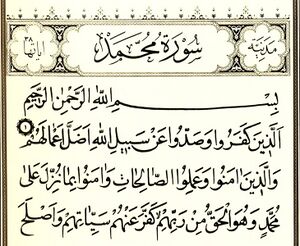 مدنية سورة محمد آياتها ٣٨
بسم الله الرحمن الرحيم
الذين كفروا وصدوا عن سبيل الله اضل اعمالهم ١
والذين امنوا وعملوا الصالحات وامنوا بما نزل على
محمد وهو الحق من ربهم كفر عنهم سيئاتهم واصلح